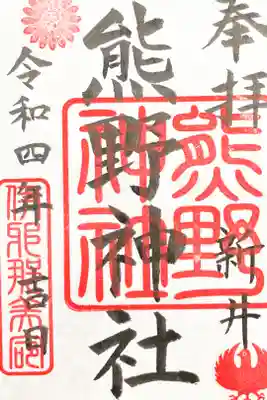 奉拝
新井
熊野神社
熊野
神社
令和四年
吉日